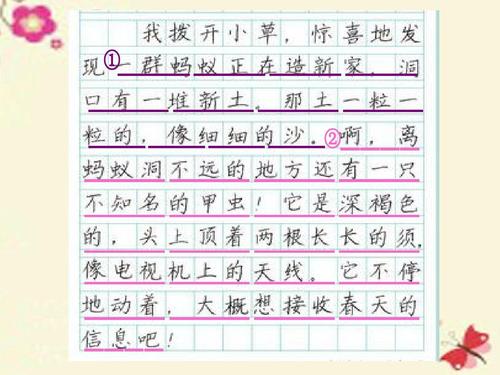 我拨开小草，惊喜地发
现①一群蚂蚁正在造新家，洞
口有一堆新土。那土一粒一
粒的，像细细的沙。②啊，离
蚂蚁洞不远的地方还有一只
不知名的甲虫！它是深褐色
的，头上顶着两根长长的须，
像电视机上的天线。它不停
地动着，大概想接收春天的
信息吧！